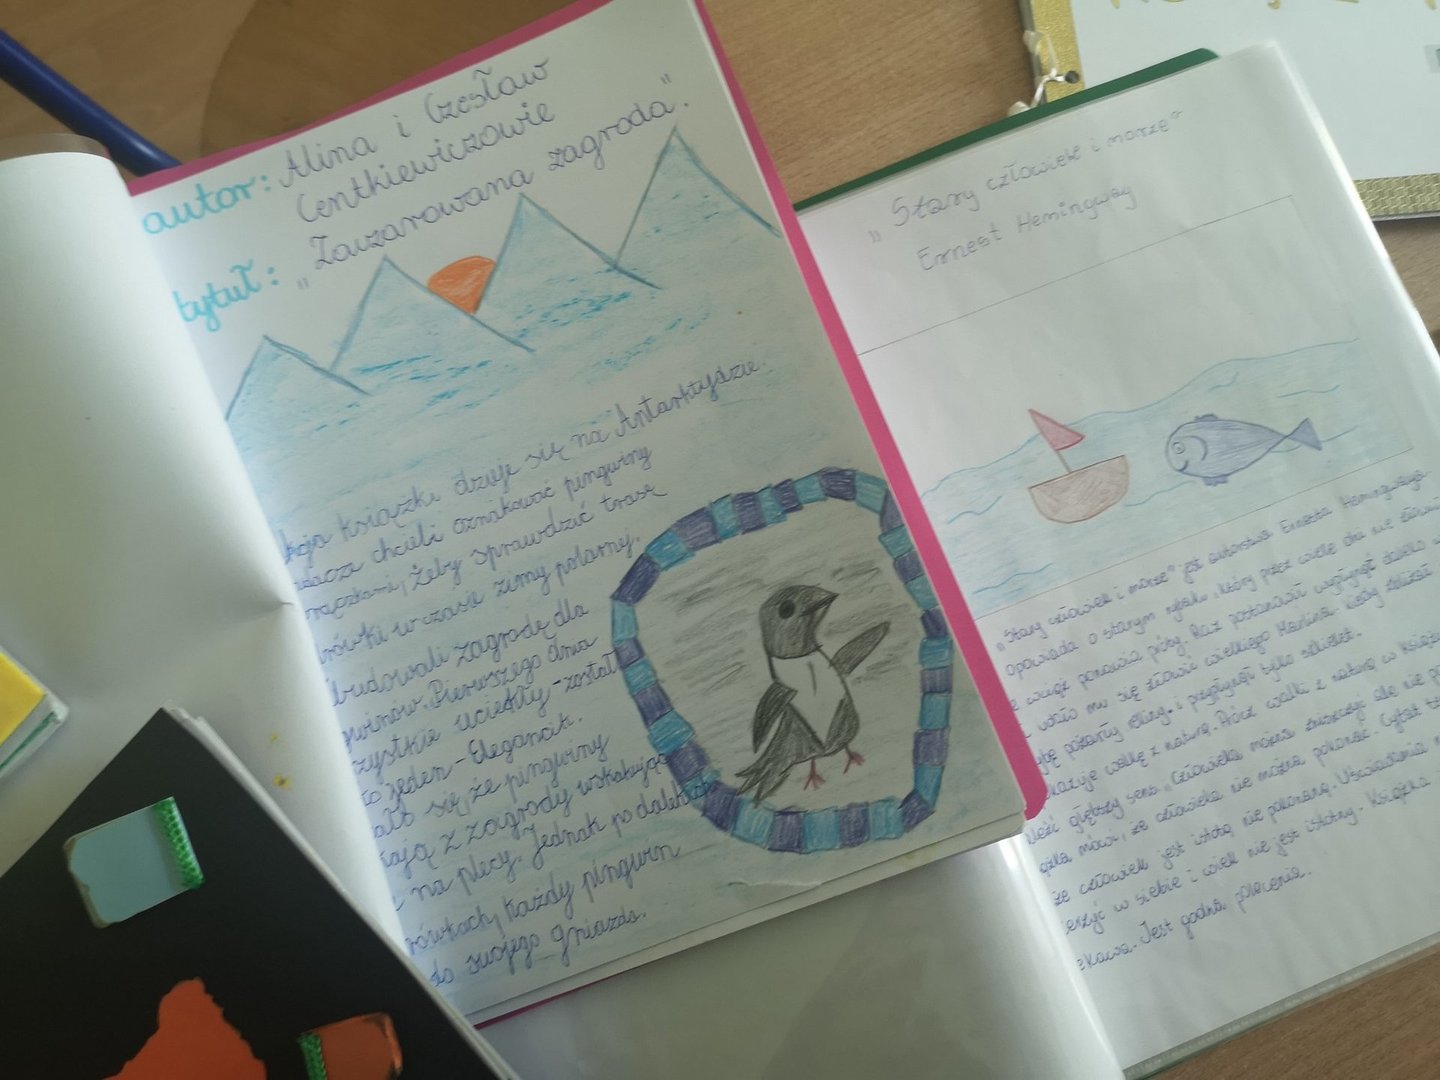 autor: Alina i Czesław
Centkiewiczowie
tytuł: „Zaczarowana zagroda".
książki dzieje się na Antarktydzie.
chcieli oznakować pingwiny
żeby sprawdzić trasę
w czasie zimy polarnej.
zagrodę dla
Pierwszego dnia
uciekły - został
jeden - Elegancik.
się, że pingwiny
z zagrody wskakując
na plecy. Jednak po dalekich
każdy pingwin
do swojego gniazda.
„Stary człowiek i morze"
Ernest Hemingway
„Stary człowiek i morze" jest autorstwa Ernesta Hemingwaya
opowiada o starym rybaku, który przez wiele dni nie
wciąż ponawia próby. Raz postanowił wypłynąć daleko
mu się złowić wielkiego Marlina. Kiedy
pożarły rekiny i przypłynął tylko szkielet.
walkę z naturą. Prócz walki z naturą w
głębszy sens „Człowieka można zniszczyć ale nie
mówi, że człowieka nie można pokonać. Cytat
że człowiek jest istotą nie pokonaną. Uświadamia
w siebie i wiek nie jest istotny. Książka
Jest godna polecenia.